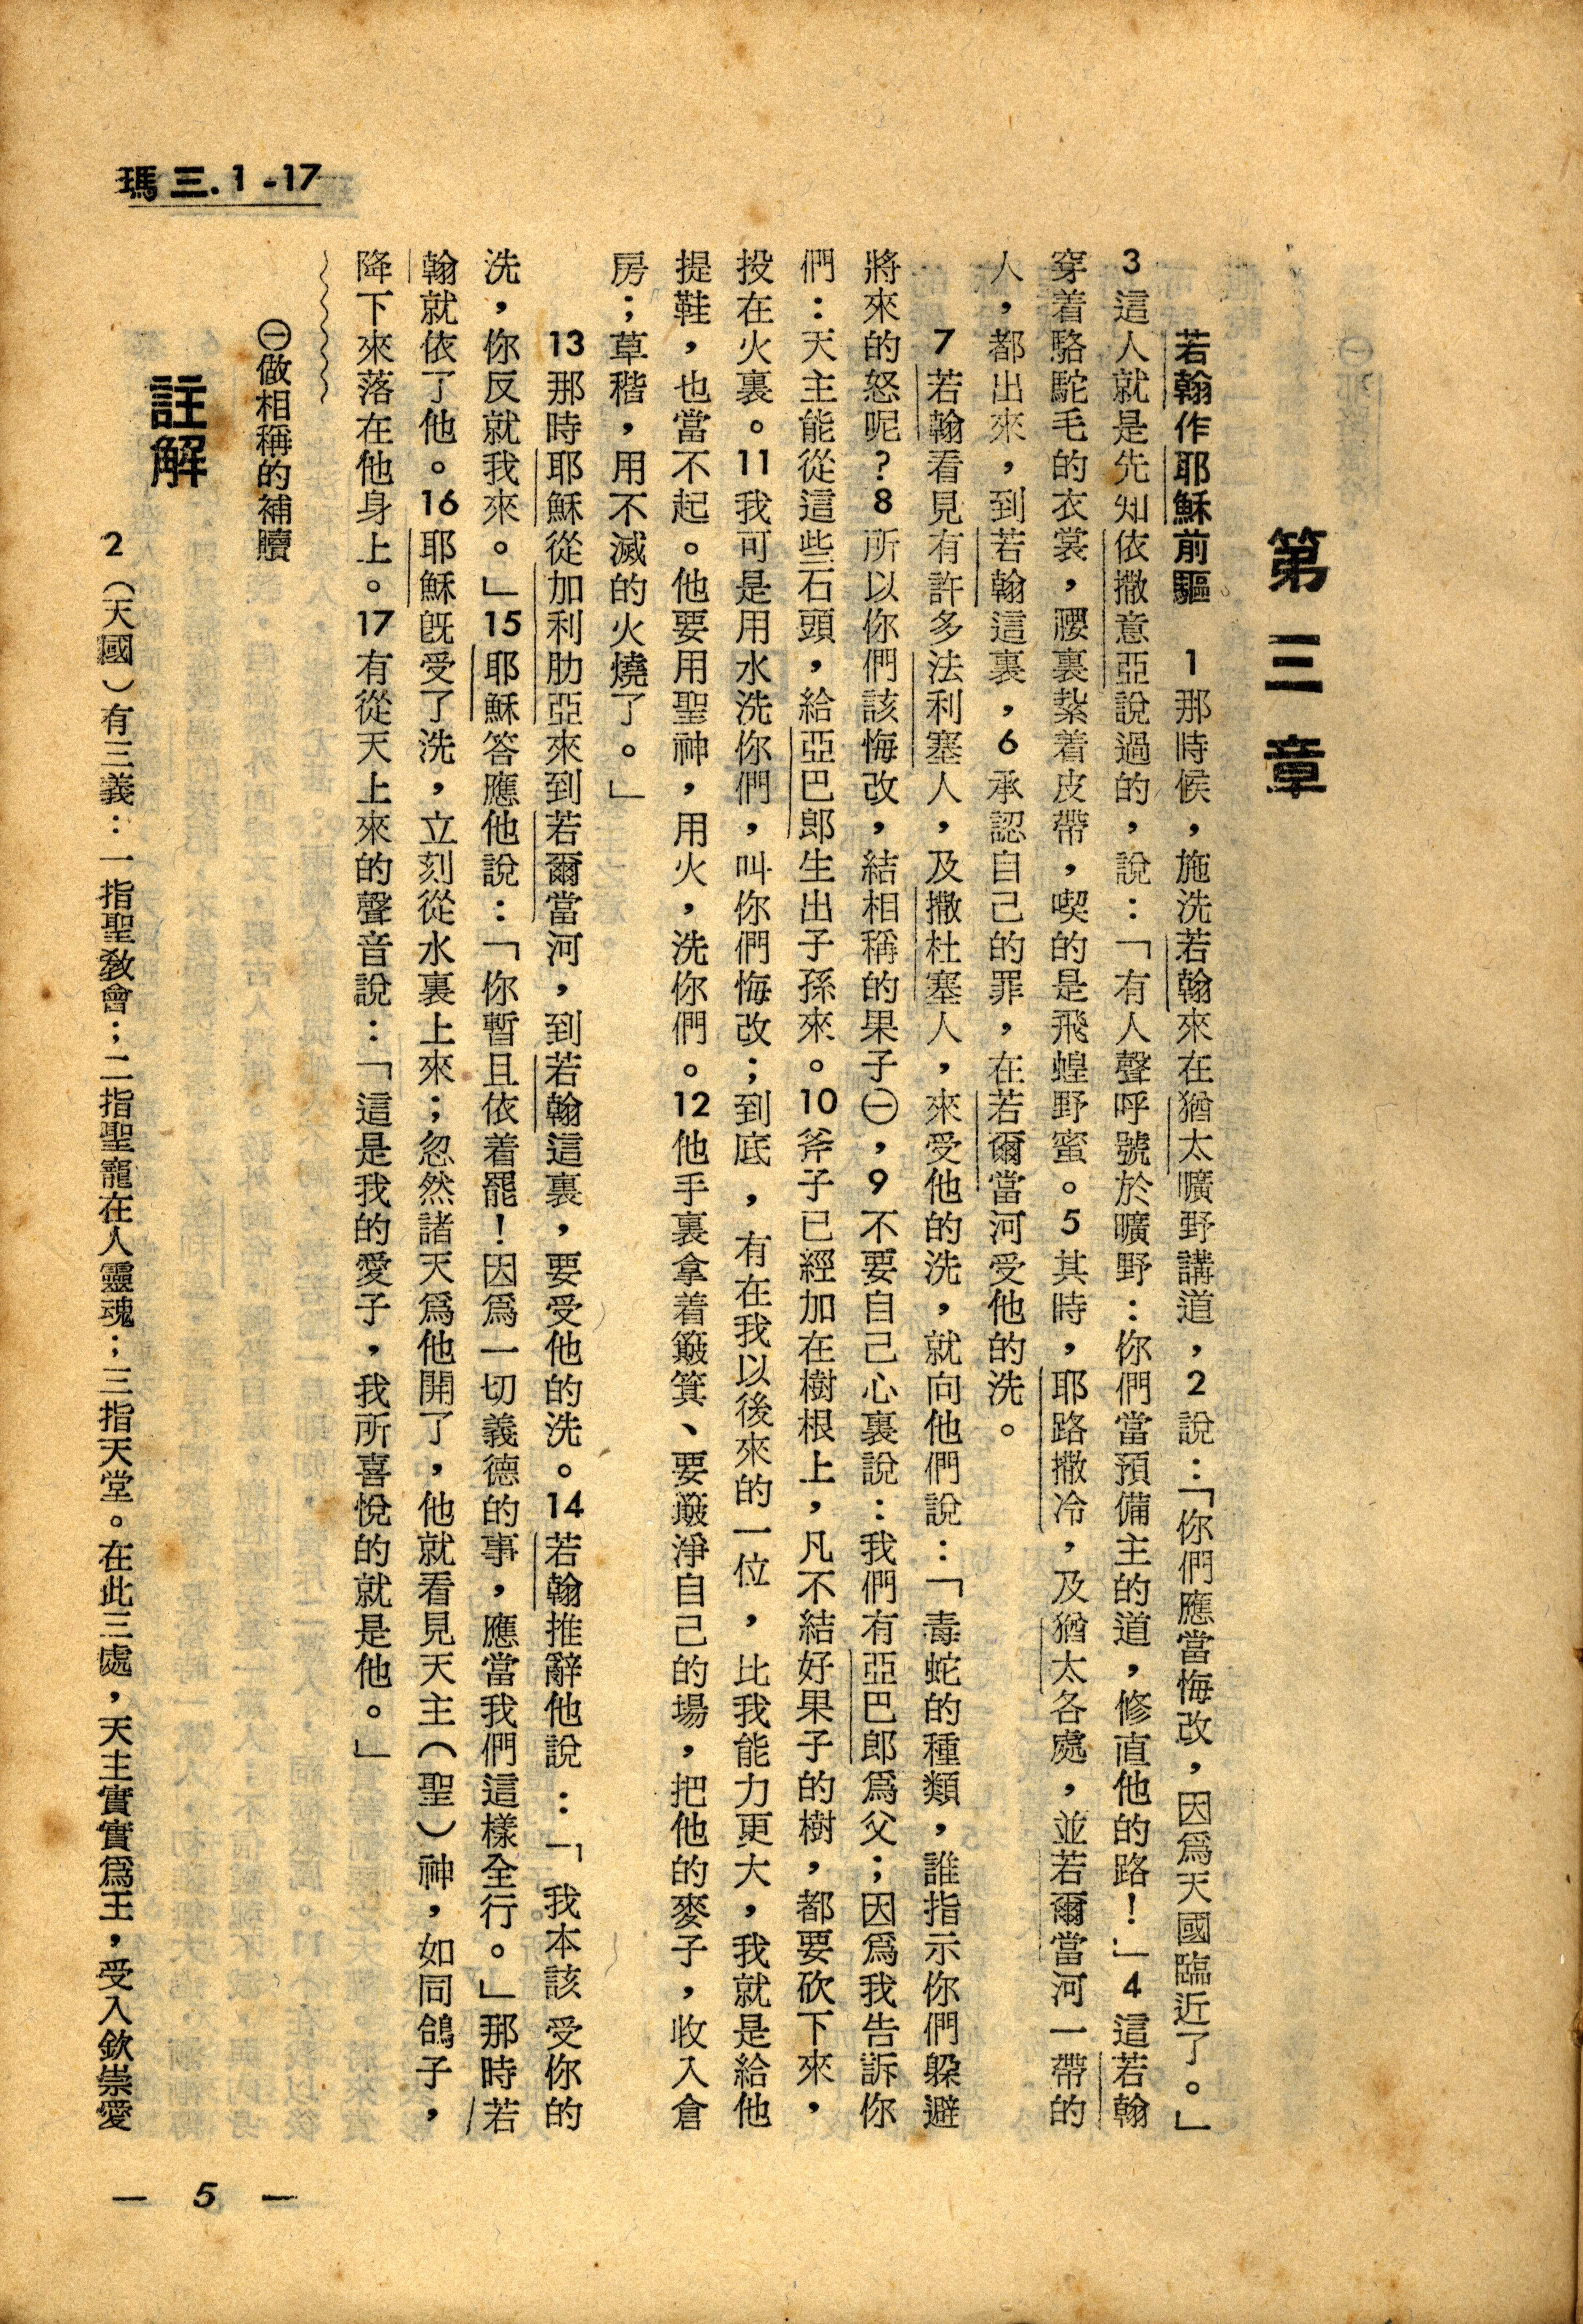 瑪三.1-17
第三章
若翰作耶穌前驅　1那時候，施洗若翰來在猶太曠野講道，2說：「你們應當悔改，因爲天國臨近了。」
3這人就是先知依撒意亞說過的，說：「有人聲呼號於曠野：你們當預備主的道，修直他的路！」4這若翰
穿着駱駝毛的衣裳，腰裏紮着皮帶，喫的是飛蝗野蜜。5其時，耶路撒冷，及猶太各處，並若爾當河一帶的
人，都出來，到若翰這裏，6承認自己的罪，在若爾當河受他的洗。
7若翰看見有許多法利塞人，及撒杜塞人，來受他的洗，就向他們說：「毒蛇的種類，誰指示你們躱避
將來的怒呢？8所以你們該悔改，結相稱的果子㊀，9不要自己心裏說：我們有亞巴郎爲父；因爲我告訴你
們：天主能從這些石頭，給亞巴郎生出子孫來。10斧子已經加在樹根上，凡不結好果子的樹，都要砍下來，
投在火裏。11我可是用水洗你們，叫你們悔改；到底，有在我以後來的一位，比我能力更大，我就是給他
提鞋，也當不起。他要用聖神，用火，洗你們。12他手裏拿着簸箕、要簸淨自己的場，把他的麥子，收入倉
房；草稭，用不滅的火燒了。」
13那時耶穌從加利肋亞來到若爾當河，到若翰這裏，要受他的洗。14若翰推辭他說：「我本該受你的
洗，你反就我來。」15耶穌答應他說：「你暫且依着罷！因爲一切義德的事，應當我們這樣全行。」那時若
翰就依了他。16耶穌旣受了洗，立刻從水裏上來；忽然諸天爲他開了，他就看見天主（聖）神，如同鴿子，
降下來落在他身上。17有從天上來的聲音說：「這是我的愛子，我所喜悅的就是他。」
㊀做相稱的補贖
註解
2（天國）有三義：一指聖敎會；二指聖寵在人靈魂；三指天堂。在此三處，天主實實爲王，受入欽崇愛
— 5 —